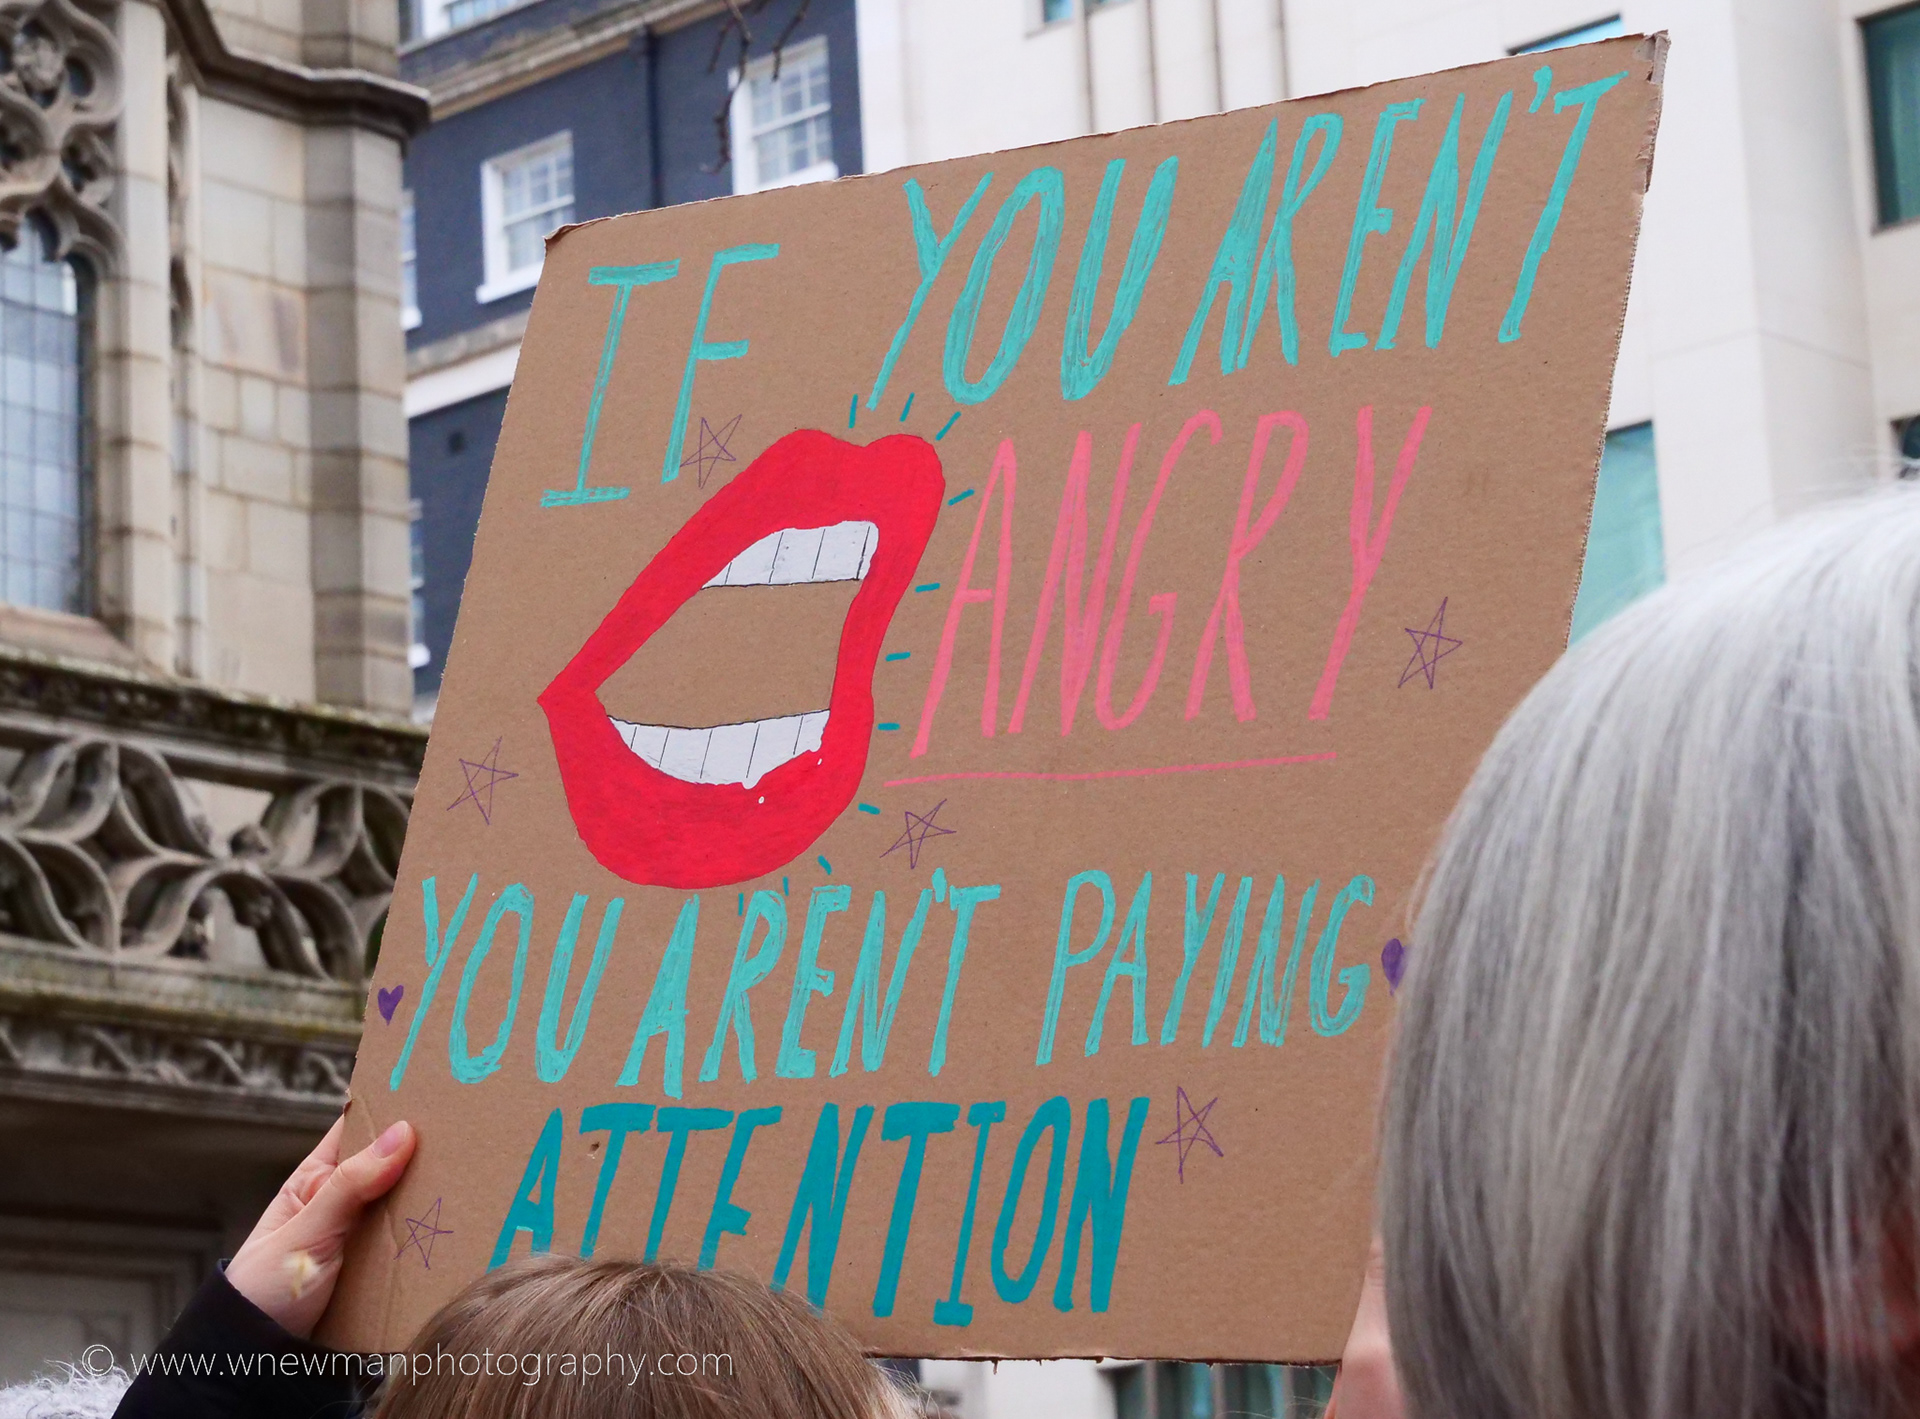 IF YOU AREN'T
ANGRY
YOU AREN'T PAYING
ATTENTION
© www.wnewmanphotography.com